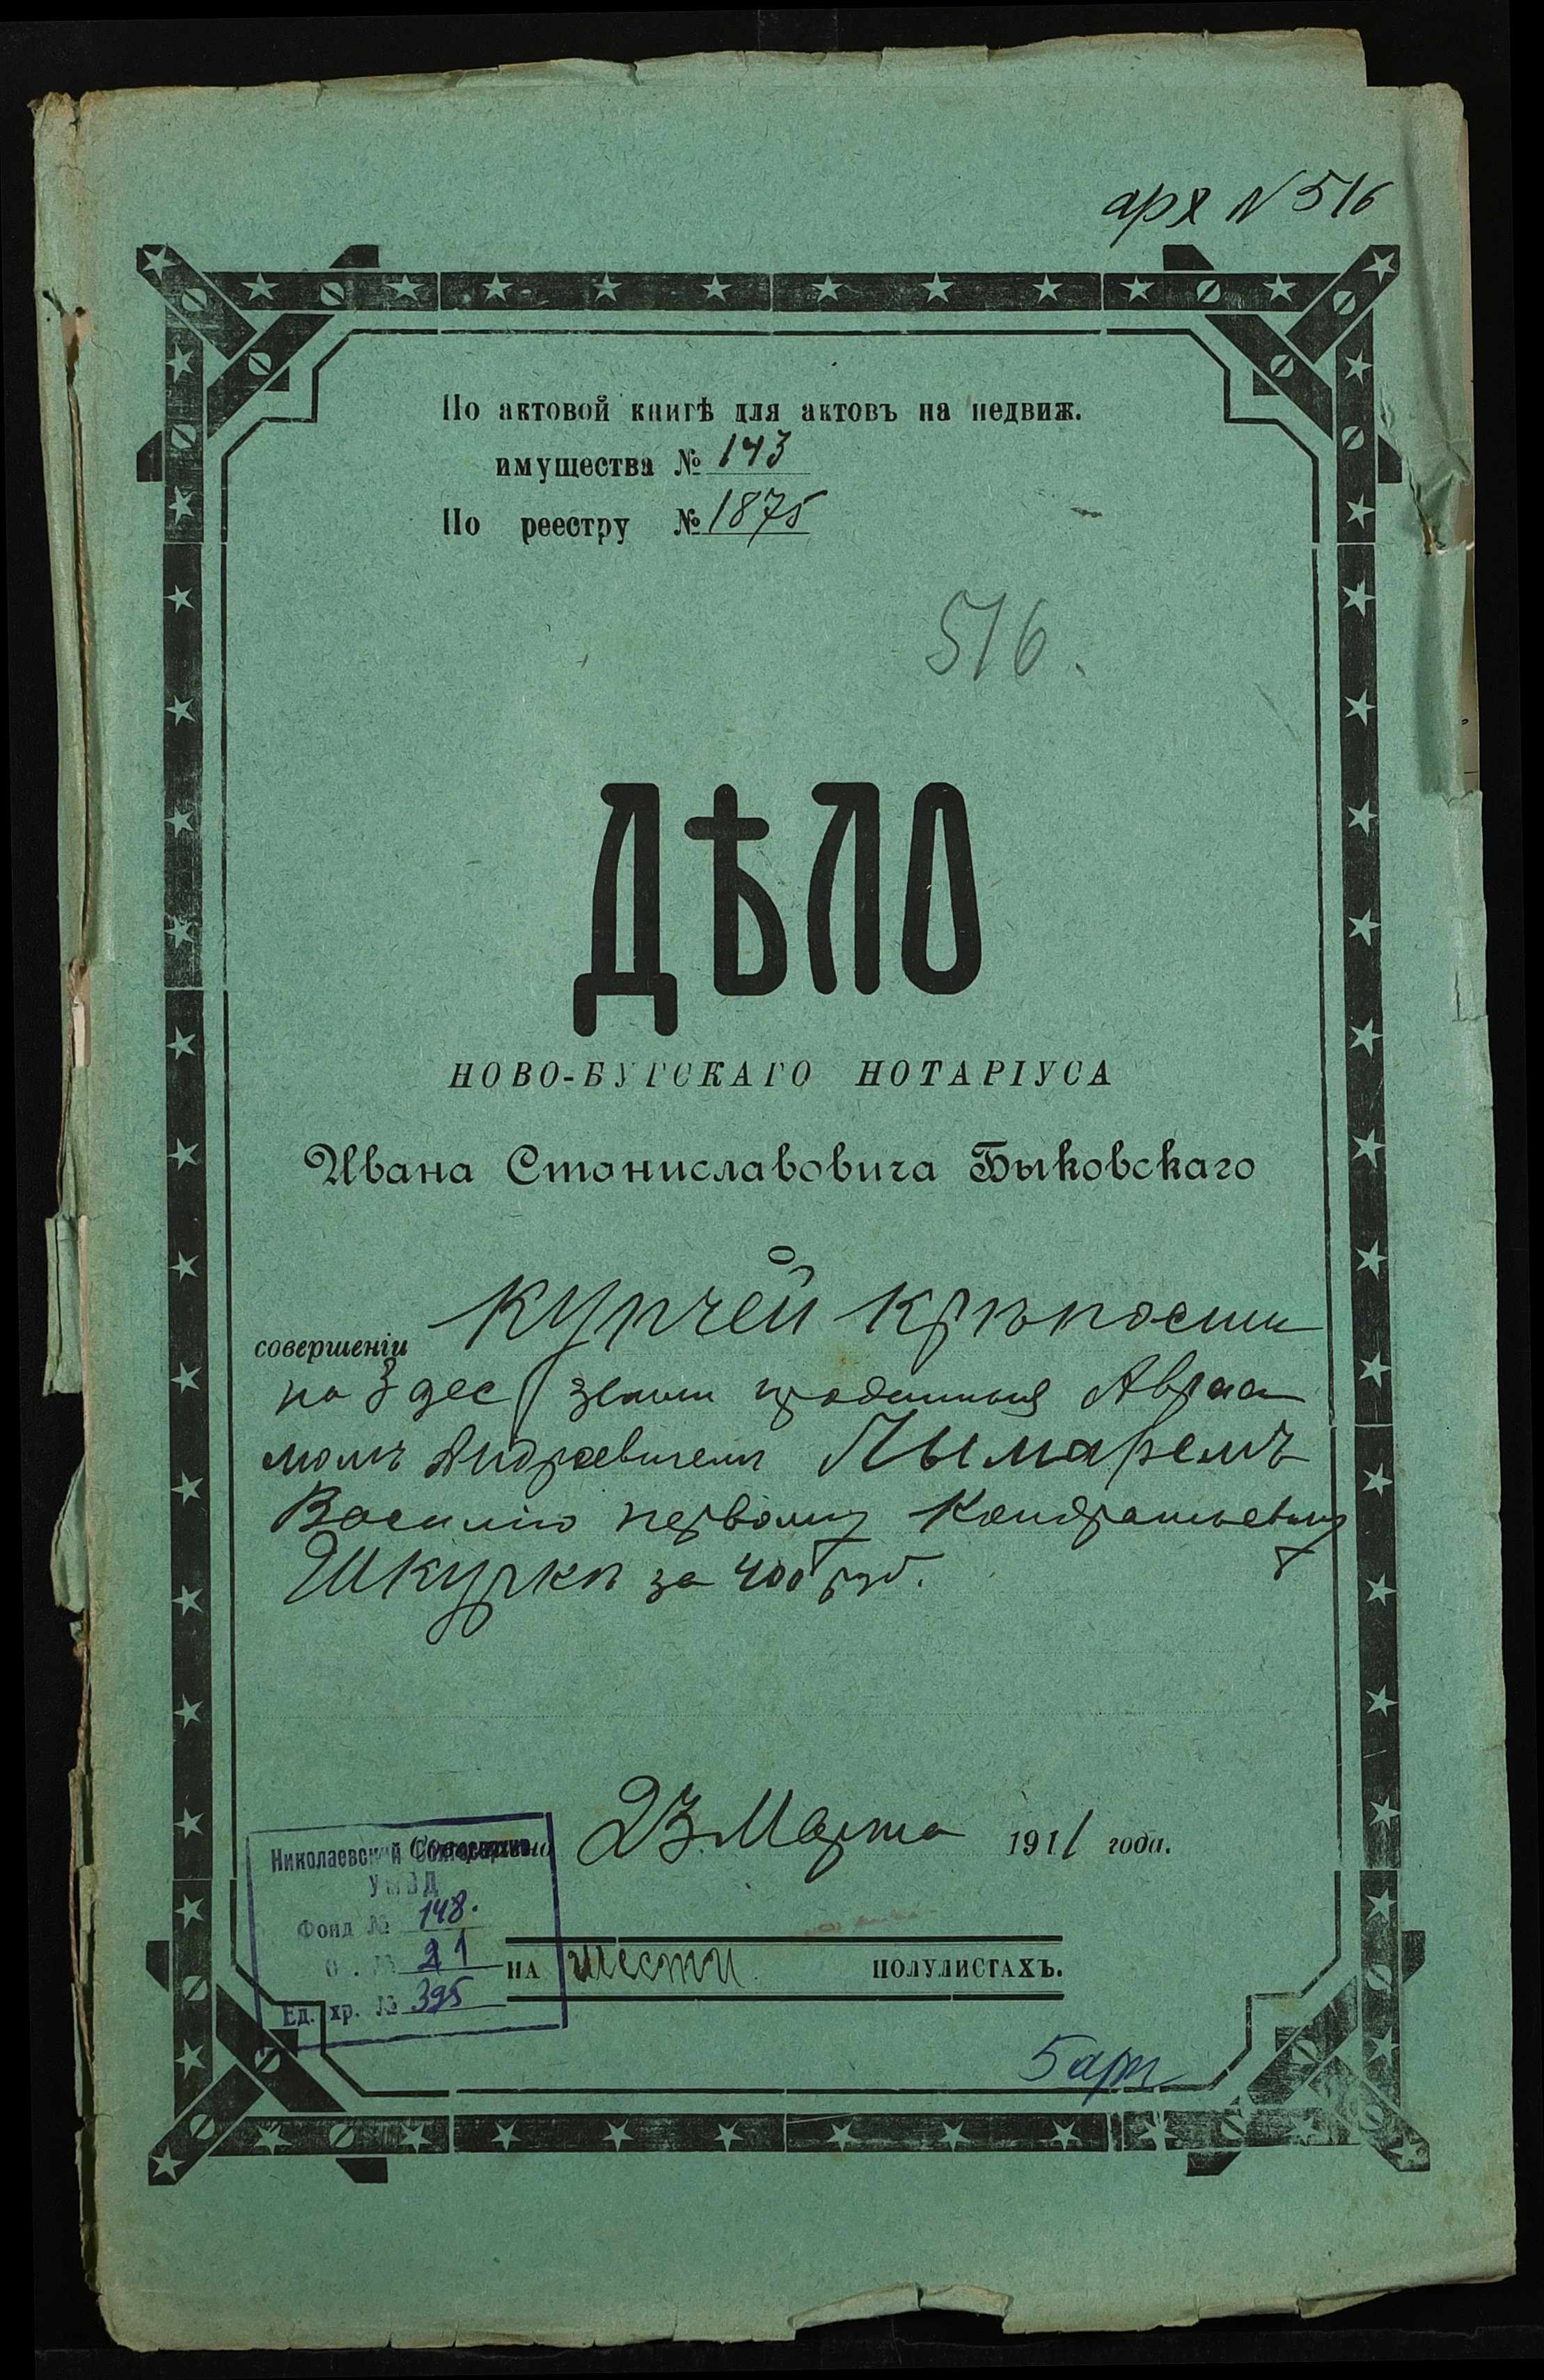 арх N 516
По актовой книгѣ для актовъ на недвиж.
имущества № 143
По реестру № 1875
516.
ДѢЛО
НОВО-БУГСКАГО НОТАРІУСА
Ивана Станиславовича Быковскаго
О
совершеніи Купчей крѣпости
на 3 дес земли проданныя Авраа
момъ Андреевичемъ Лымаремъ
Василію первому Кондратьевичу
Шкуркѣ за 400 руб.
Совершено 23 Марта 1911 года.
Николаевский Облгосархив
УМВД
Фонд № 148.
О . № 21
Ед. хр. № 395
НА шести ПОЛУЛИСТАХЪ.